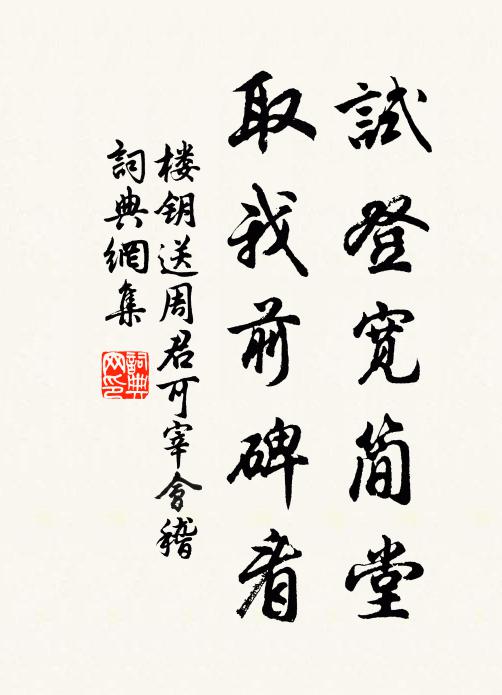 試登寬簡堂
取我前碑看
楼钥送周君可宰會稽
詞典網集
詞典網印